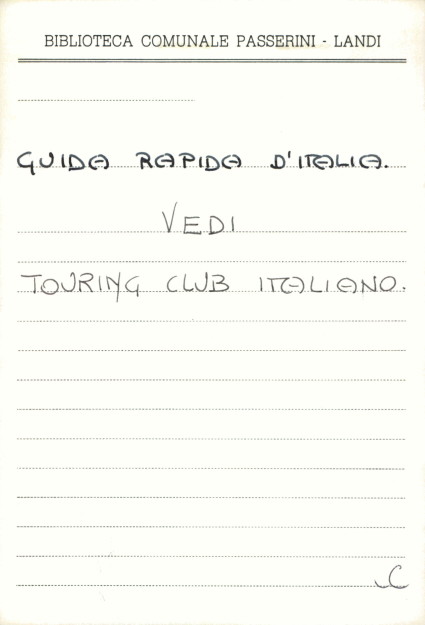 BIBLIOTECA COMUNALE PASSERINI - LANDI
GUIDA RAPIDA D'ITALIA.
VEDI
TOURING CLUB ITALIANO.